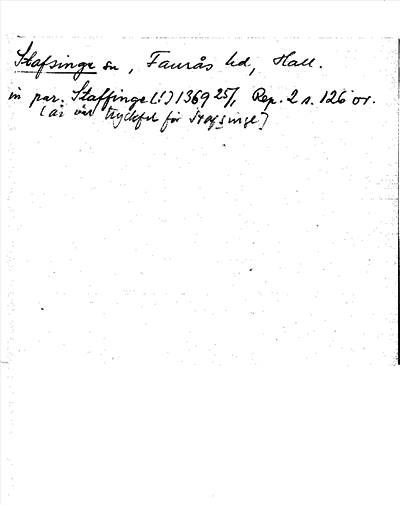 Stafsinge sn, Faurås hd, Hall.
in par. Staffinge (!) 1369 25/1 Rep. 2 s. 126 or.
(är väl tryckfel för Stafsinge)